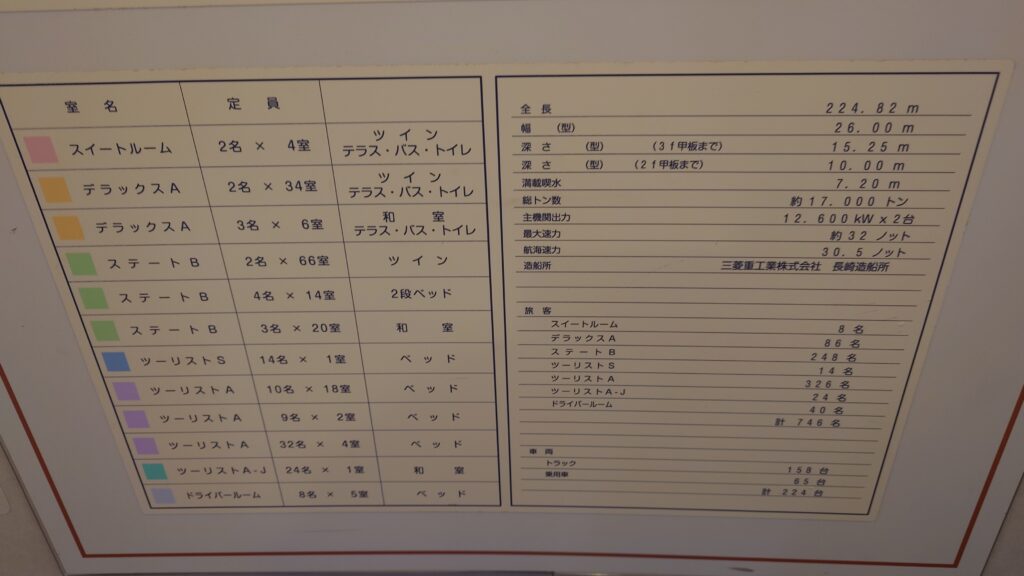 室 名 定 員
スイートルーム 2名 × 4室 ツイン テラス・バス・トイレ
デラックスA 2名 × 34室 ツイン テラス・バス・トイレ
デラックスA 3名 × 6室 和 室 テラス・バス・トイレ
ステートB 2名 × 66室 ツイン
ステートB 4名 × 14室 2段ベッド
ステートB 3名 × 20室 和 室
ツーリストS 14名 × 1室 ベッド
ツーリストA 10名 × 18室 ベッド
ツーリストA 9名 × 2室 ベッド
ツーリストA 32名 × 4室 ベッド
ツーリストA-J 24名 × 1室 和 室
ドライバールーム 8名 × 5室 ベッド
全 長 224.82 m
幅 (型) 26.00 m
深 さ (型) (3f甲板まで) 15.25 m
深 さ (型) (2f甲板まで) 10.00 m
満載喫水 7.20 m
総トン数 約17.000 トン
主機関出力 12.600kW x 2台
最大速力 約32 ノット
航海速力 30.5 ノット
造船所 三菱重工業株式会社 長崎造船所
旅 客
スイートルーム 8 名
デラックスA 86 名
ステートB 248 名
ツーリストS 14 名
ツーリストA 326 名
ツーリストA-J 24 名
ドライバールーム 40 名
計 746 名
車 両
トラック 158 台
乗用車 65 台
計 224 台